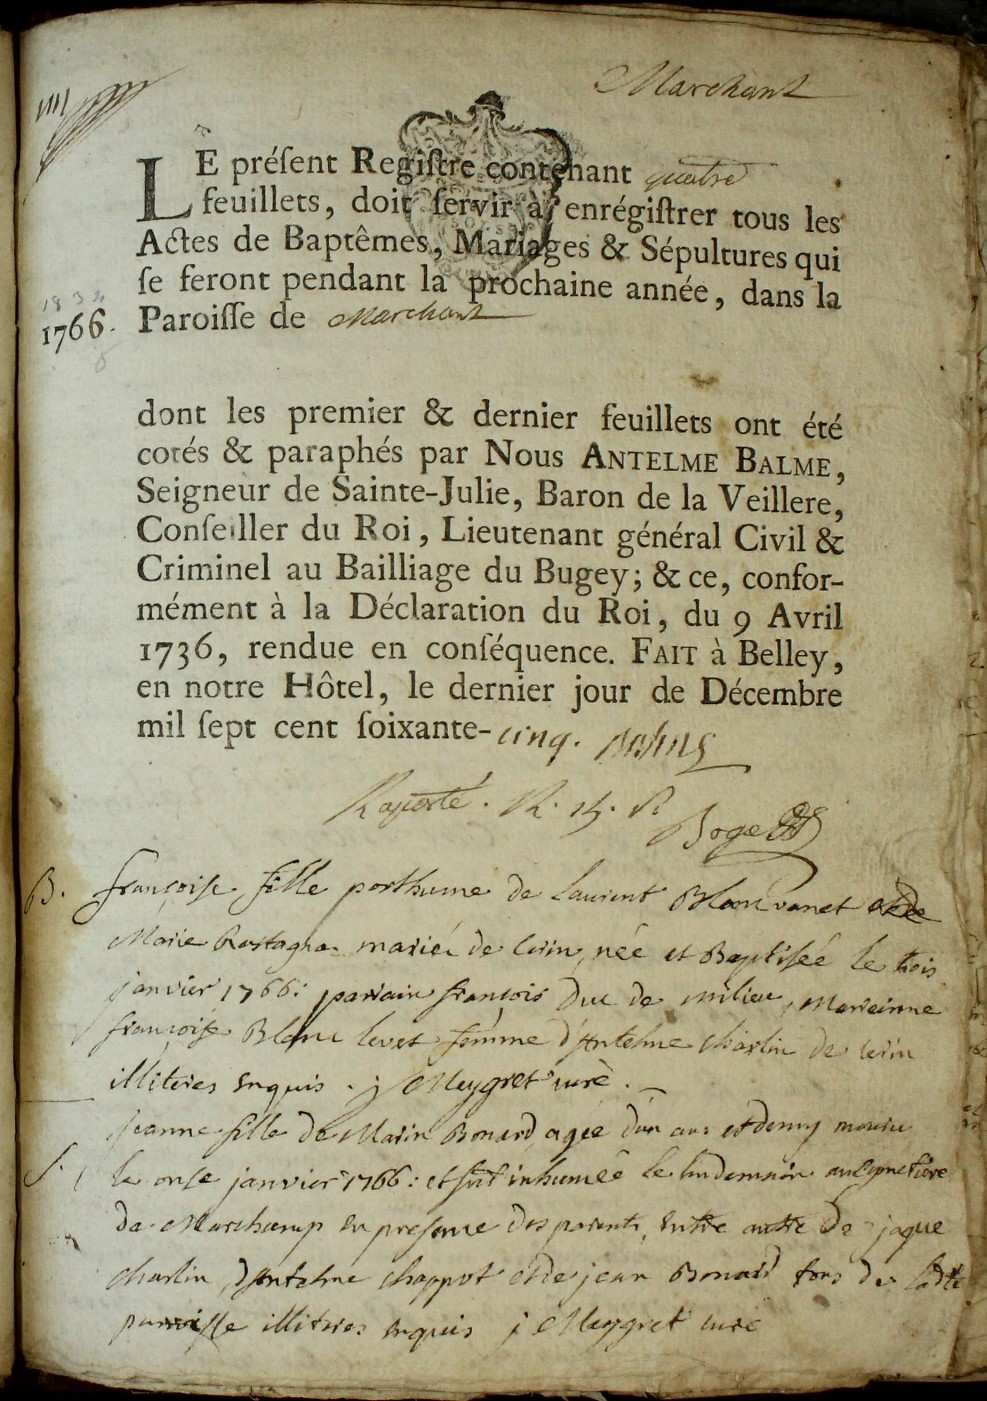 Marchant
LE préſent Regiſtre contenant quatre
feuillets, doit ſervir à enrégiſtrer tous les
Actes de Baptêmes, Mariages & Sépultures qui
ſe feront pendant la prochaine année, dans la
1766. Paroiſſe de Marchant
dont les premier & dernier feuillets ont été
cotés & paraphés par Nous ANTELME BALME,
Seigneur de Sainte-Julie, Baron de la Veillere,
Conſeiller du Roi, Lieutenant général Civil &
Criminel au Bailliage du Bugey; & ce, confor-
mément à la Déclaration du Roi, du 9 Avril
1736, rendue en conſéquence. FAIT à Belley,
en notre Hôtel, le dernier jour de Décembre
mil ſept cent ſoixante-cinq.
B. françoise fille posthume de Laurent Blanc vanet
Marie mariéé de née et Baptiséé le trois
janvier 1766: parrain françois Duc de milieu, Marreinne
françoise Blanc femme d'Antelme charlin de
illiteres enquis. j Meygret curè.
jeanne fille de Marin Bonard agéé d'un ans et demy
S. le onse janvier 1766: et fut inhuméé le lendemain au Cymetière
de Marchamp en presence des parents, entre autre de jaque
charlin, d'Antelme chappot et de jean Bonard tous de
parroisse illiteres enquis j Meygret curè